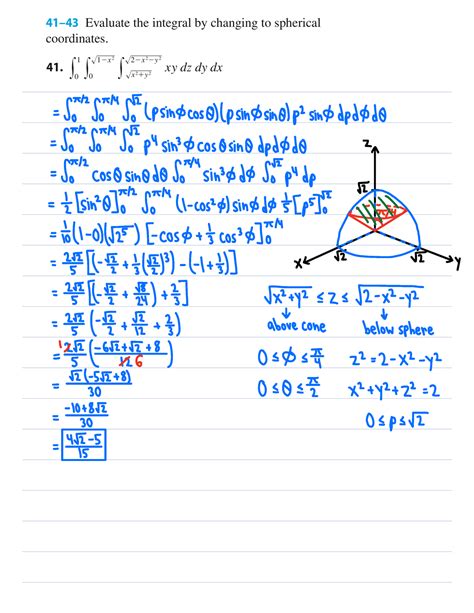 41–43 Evaluate the integral by changing to spherical
coordinates.
41. ∫₀¹ ∫₀^√(1−x²) ∫_√(x²+y²)^√(2−x²−y²) xy dz dy dx
= ∫₀^π/2 ∫₀^π/4 ∫₀^√2 (ρ sinϕ cosθ)(ρ sinϕ sinθ) ρ² sinϕ dρdϕdθ
= ∫₀^π/2 ∫₀^π/4 ∫₀^√2 ρ⁴ sin³ϕ cosθ sinθ dρdϕdθ
= ∫₀^π/2 cosθ sinθ dθ ∫₀^π/4 sin³ϕ dϕ ∫₀^√2 ρ⁴ dρ
= 1/2 [sin²θ]₀^π/2 ∫₀^π/4 (1−cos²ϕ) sinϕ dϕ 1/5 [ρ⁵]₀^√2
= 1/10 (1−0)(√2⁵) [−cosϕ + 1/3 cos³ϕ]₀^π/4
= 2√2/5 [(−√2/2 + 1/3(√2/2)³) − (−1 + 1/3)]
= 2√2/5 [(−√2/2 + √8/24) + 2/3]
= 2√2/5 (−√2/2 + √2/12 + 2/3)
= 1 2√2/5 ((−6√2+√2+8)/12 6)
= √2(−5√2+8)/30
= (−10+8√2)/30
= (4√2−5)/15
z
√2
π/4
x
√2
√2
y
√(x²+y²) ≤ z ≤ √(2−x²−y²)
↓ ↓
above cone below sphere
0 ≤ ϕ ≤ π/4 z² = 2−x²−y²
0 ≤ θ ≤ π/2 x²+y²+z² = 2
0 ≤ ρ ≤ √2